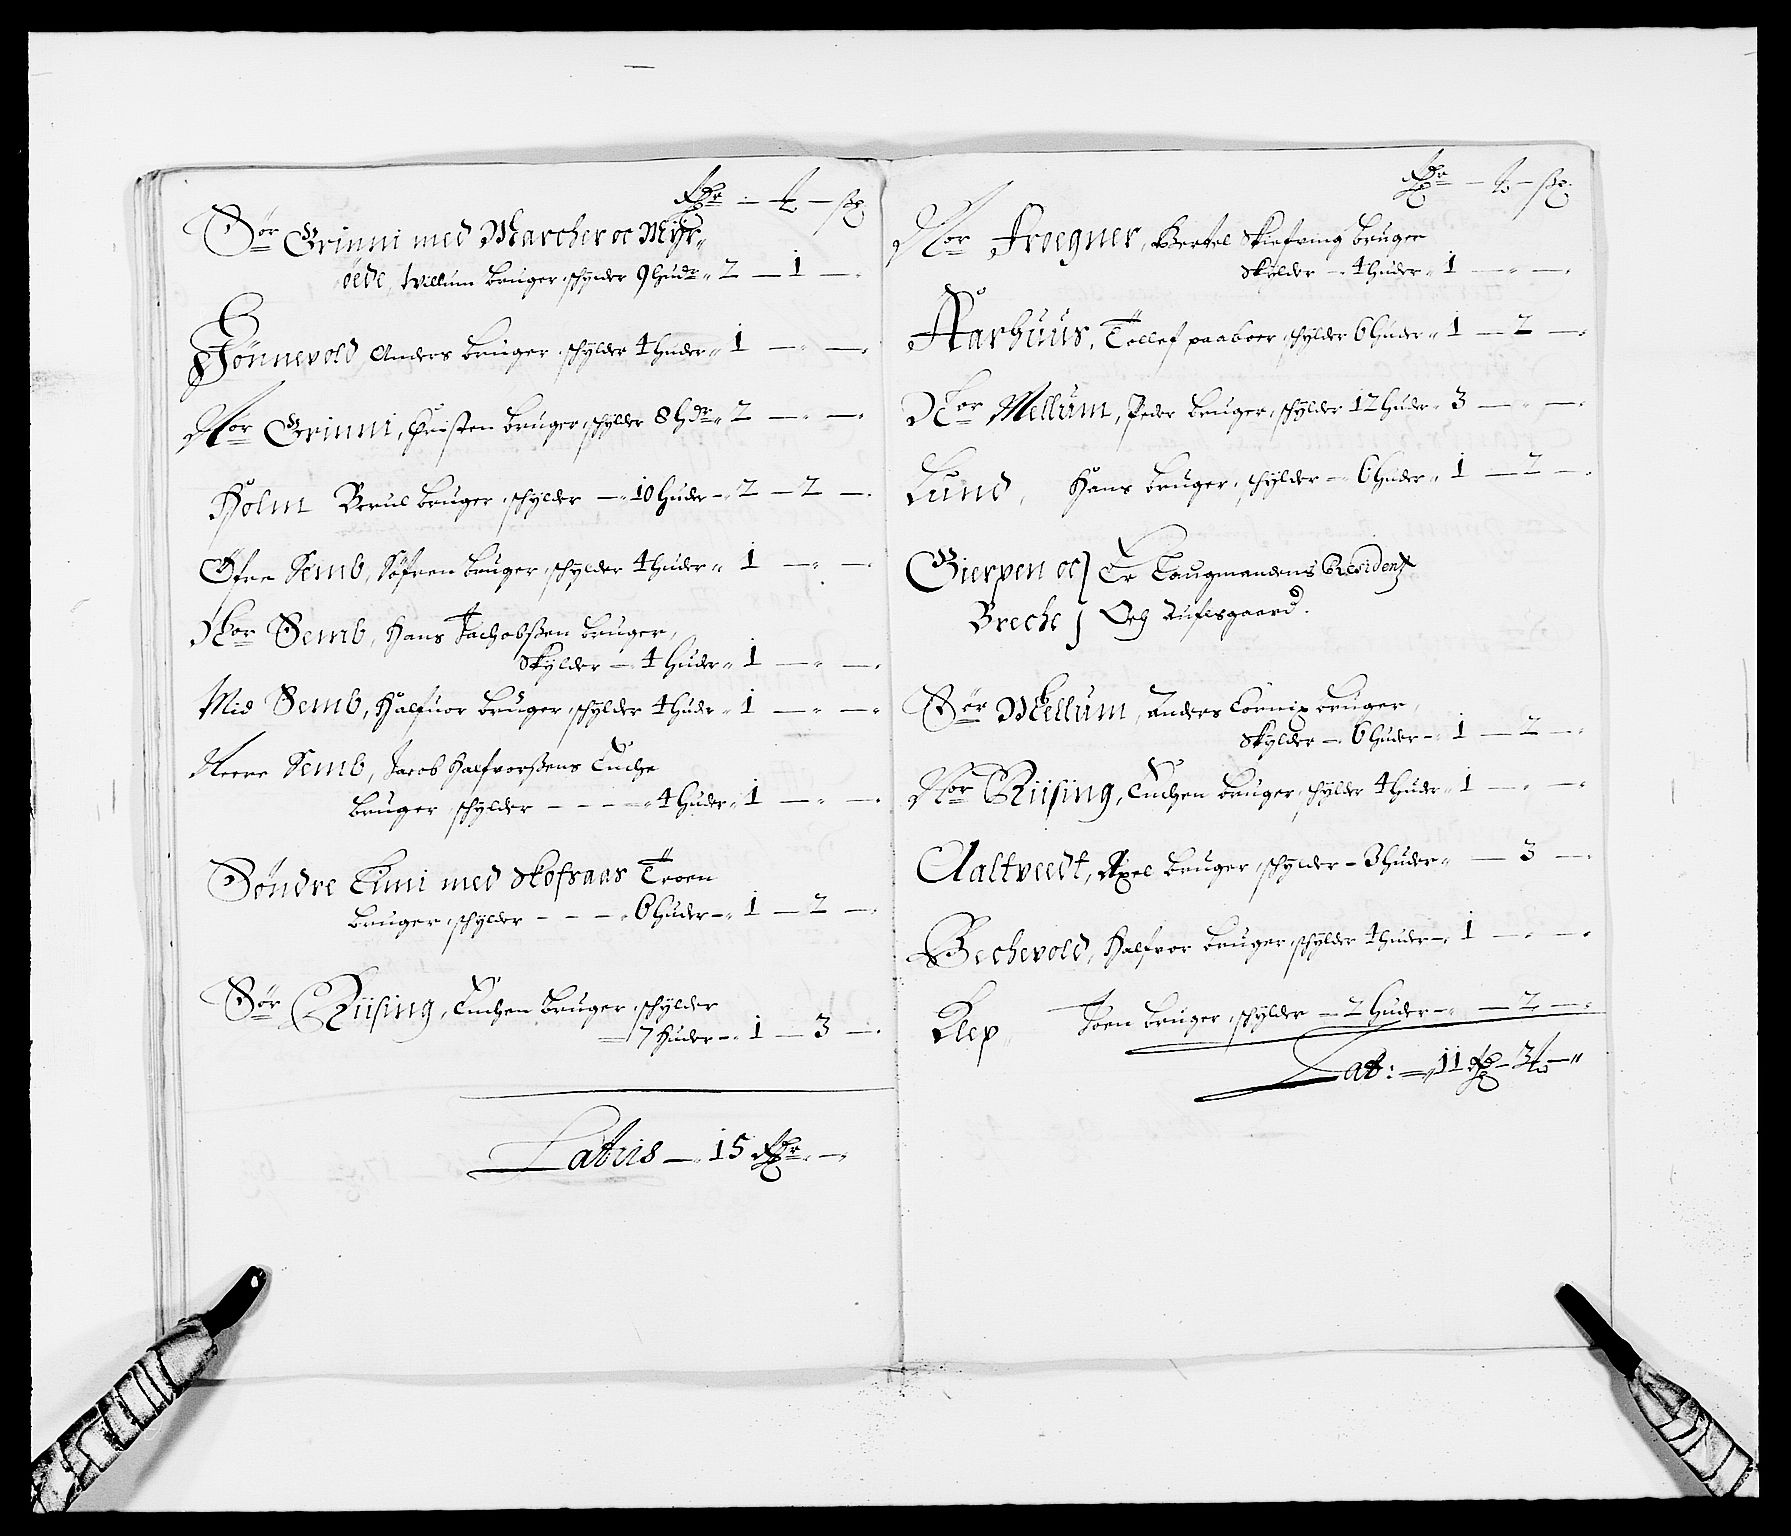 Rdr — ß — sk
Sør Grinni med Marcher oc Myr-
øede, Willum bruger, schylder 9 hudr — 2 — 1 —
Fønnevold, Anders bruger, schylder 4 huder — 1 — —
Nor Grinni, Christen bruger, schylder 8 hdr — 2 — —
Holm Beruel bruger, schylder — 10 huder — 2 — 2 —
Øfre Semb, Søfren bruger, schylder 4 huder — 1 — —
Nor Semb, Hans Jachobßen bruger,
Skylder — 4 huder — 1 — —
Mid Semb, Halfuor bruger, schylder 4 hudr — 1 — —
Neere Semb, Jacob Halfvorßens Enche
bruger schylder — — — 4 huder — 1 — —
Søndre Limi med Skofsaas Troen
bruger, schylder — — — 6 huder — 1 — 2 —
Sør Riising, Enchen bruger, schylder
7 huder — 1 — 3 —
Latus — 15 Rdr —
Rdr — ß — sk
Nor Frogner, Bertel Skiefving bruger
Skylder — 4 huder — 1 — —
Aarhuus, Tollef paaboer, schylder 6 huder — 1 — 2 —
Nor Mellum, Peder bruger, schylder 12 hudr — 3 — —
Lund, Hans bruger, schylder — 6 huder — 1 — 2 —
Gierpen oc } Er Laugmandens Residentz
Breche } Och Auflsgaard.
Sør Mellum, Anders Cornix bruger,
Skylder — 6 huder — 1 — 2 —
Nor Riising, Enchen bruger, schylder 4 hudr — 1 — —
Aaltveedt, Axel bruger, schylder — 3 huder — — 3 —
Bechevold, Halfvor bruger, schylder 4 huder — 1 — —
Klep, Joen bruger, schylder — 2 huder — — 2 —
Lat: — 11 Rd — 3 ß — "